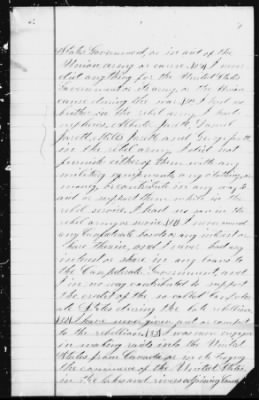 States Government, or in aid of the
Union army or cause. No 9 I never
did anything for the United States
Government or its army, or the Union
cause during the war. I had no
brother in the rebel army. I had
nephews, Daniel
in the rebel army. I did not
furnish either of them with any
military equipments, any clothing, or
money, or contribute in any way to
aid or support them while in the
rebel service. I
rebel army or service. I never owned
any Confederate bonds or any interest or
share therein, and I never had any
interest or share in any loans to
the Confederate Government, and
I in no way contributed to support
the credit of the so called Confeder-
ate States during the late rebellion.
I have never given aid or comfort
to the rebellion. I was never engaged
in making raids into the United
States from Canada or in destroying
the commerce of the United States
in the lakes and rivers adjoining Canada